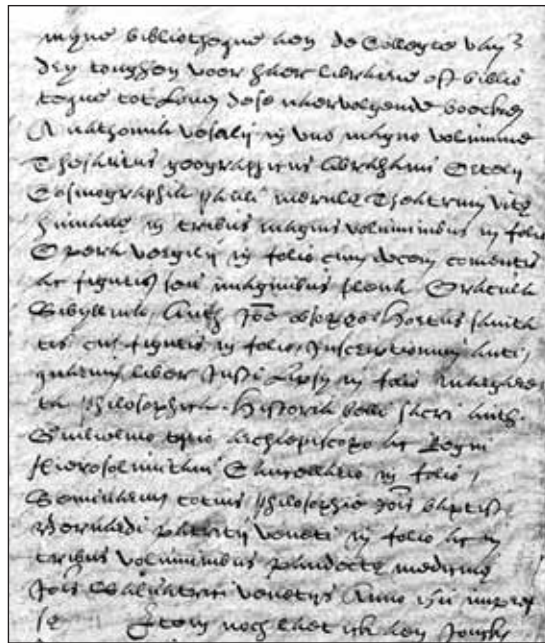 myne bibliotheque aen de Collegie van
den voor haer librarie oft biblio
teque tot Loven dese naervolgende boecken
Anathomia vesalij in uno magno volumine
Thesaurus geographicus Abrahami Ortelij
Cosmographia pauli merulę Theatrum vitę
humanę in tribus magnis voluminibus in folio
Opera vergilij in folio cum decem comentis
ac figuris seu imaginibus plena Oracula
Sibyllina, Auth Joe obsopeo Hortus sanita
tis cu figuris in folio, Inscriptionum anti,
quarum liber Justi Lipsij in folio margare
ta philosophica. Historia belli sacri auth.
Guilielmo tyrio archiepiscopo ac Regni
hierosolimitani Cancellario in folio,
Seminarium totius philosophie Jois baptistę
Bernardi patritij veneti in folio ac in
tribus voluminibus medicinę
Jois venetijs Anno impres
se Item noch laet ick aen